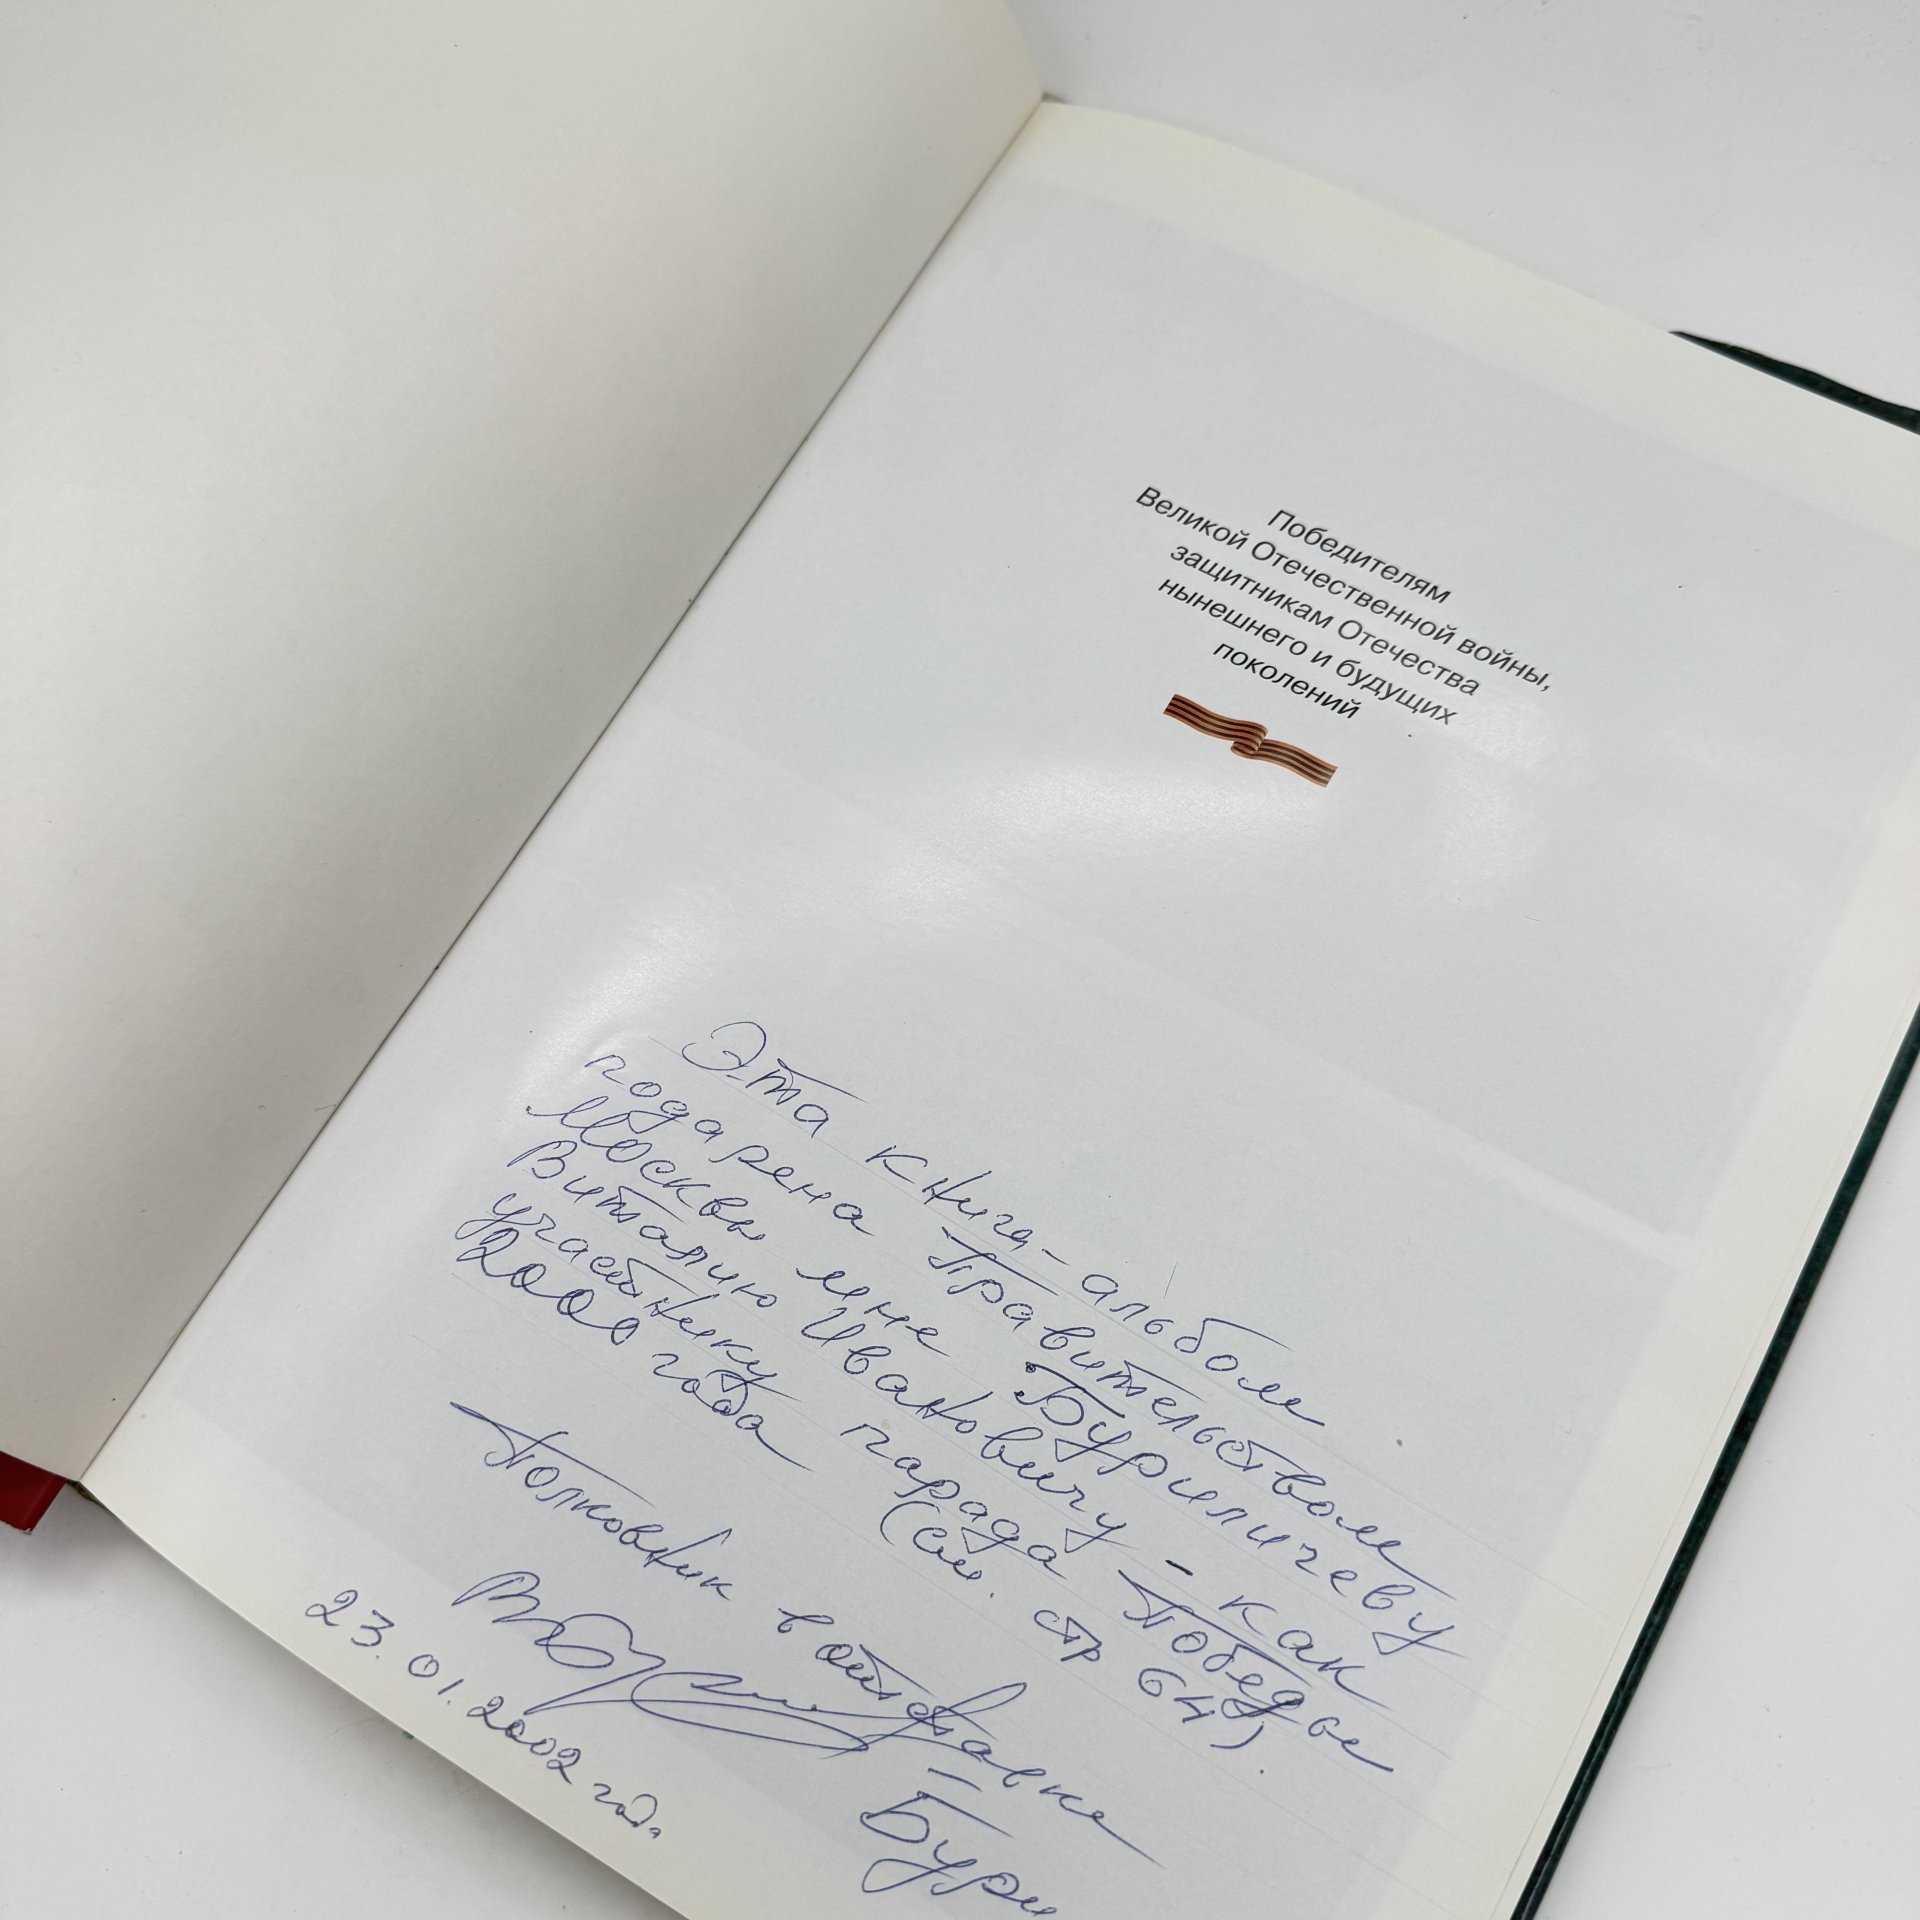 Победителям
Великой Отечественной войны,
защитникам Отечества
нынешнего и будущих
поколений
Эта книга-альбом
подарена Правительством
Москвы мне Буриличеву
Виталию Ивановичу - как
участнику парада Победы
2000 года (см. стр 64).
Полковник в отставке
- Бури
23.01.2002 год.